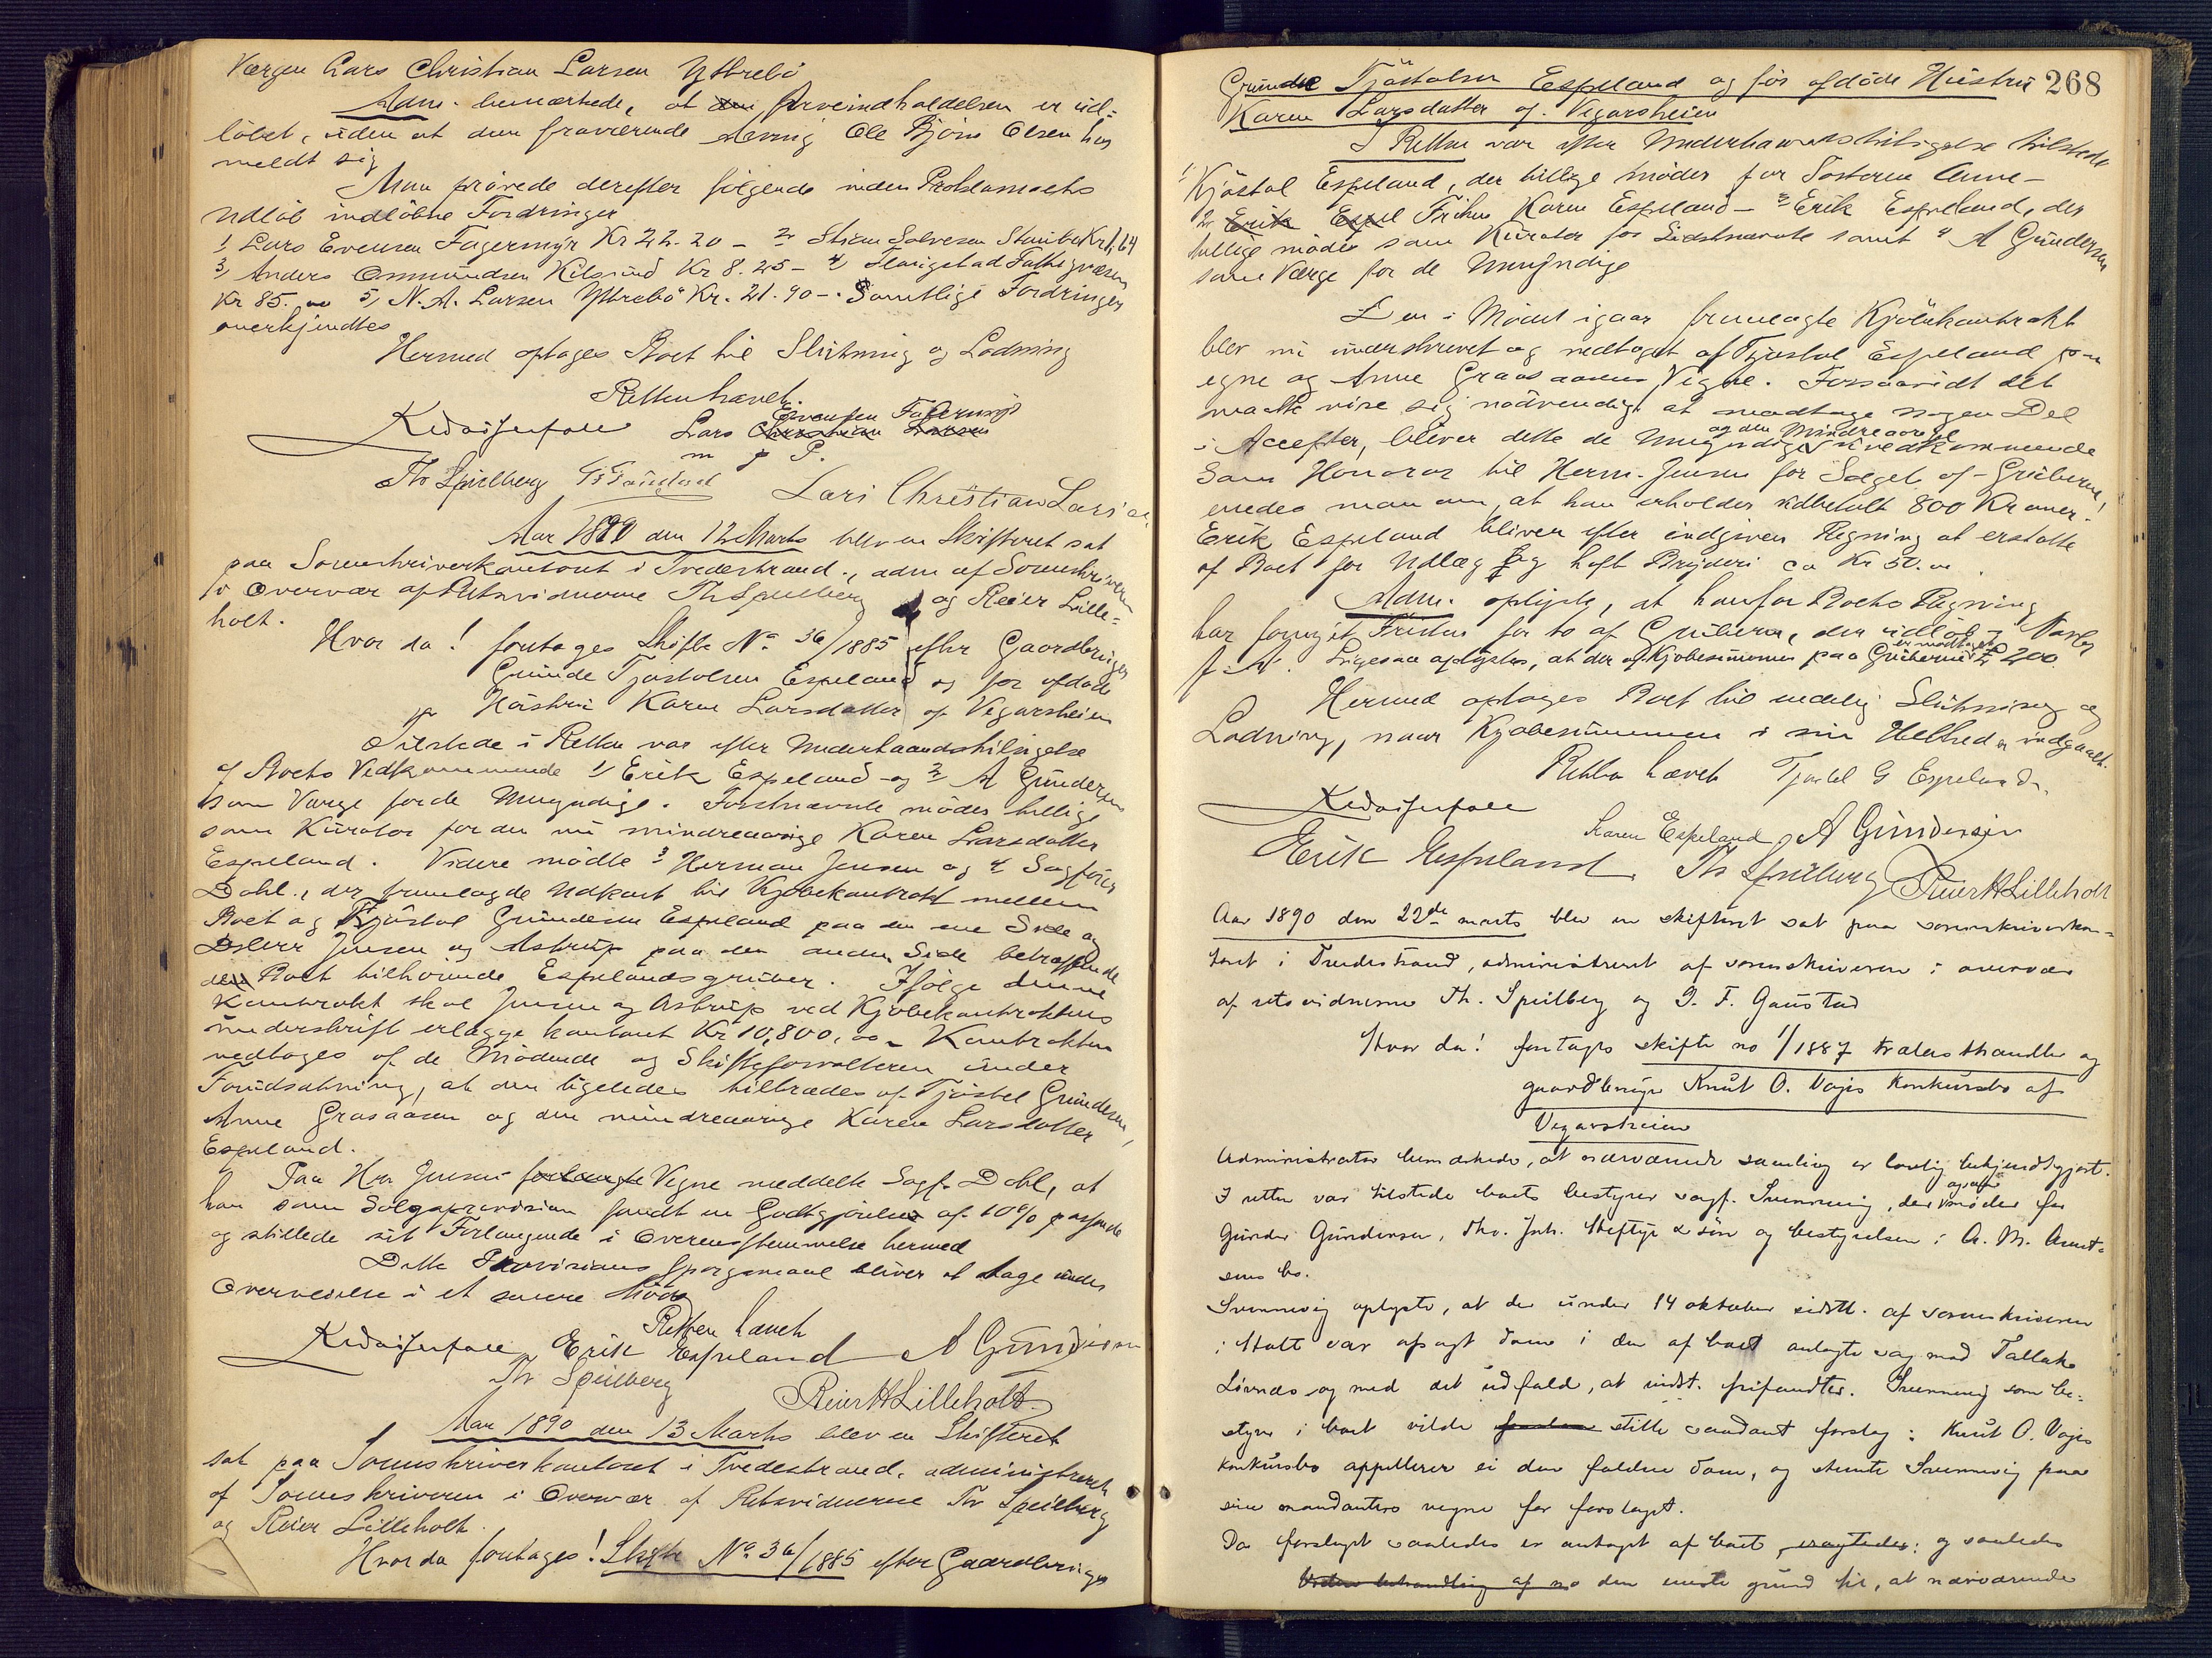 Værgen Lars Christian Larsen Ytterbö
Adm. bemærkede, at den Arveindkaldelsen er üd-
löbet, üden at den fraværende Arving Ole Björn Olsen har
meldt sig
Man prövede derefter fölgende inden Proklamaets
Udlöb indlöbne Fordringer
1, Lars Evensen Fagermyr Kr 22.20 – 2, Stian Salvesen Staübö Kr 1,64
3, Anders Ommündsen Kilsünd Kr 8.25 – 4, Fattigvæsen
Kr 85. 00 5, N. A. Larsen Ytterbö Kr. 21.90 –. Samtlige Fordringer
anerkjendtes
Hermed optages Boet til Slütning og Lodning
Retten hævet.
Lars Evensen Fagermyr
Christian Larsen
m p P.
Th Speilberg Lars Christian Larsen
Aar 1890 den 12 Marts blev en Skifteret sat
paa Sorenskriverkontoret i Tvedestrand., adm af Sorenskriveren
i Overvær af Retsvidnerne Th Speilberg og Reier Lille=
holt.
Hvor da! foretages Skifte No 36/1885 efter Gaardbrüger
Günde Tjöstolsen Espeland og för afdöde
Hüstrü Karen Larsdatter af Vegarsheien
Tilstede i Retten var efter Underhaandstilsigelse
af Boets Vedkommende 1, Erik Espeland og 2, A Gündersen
som Værge for de Umyndige. Förstnævnte möder tillige
som Kürator for den nü mindreaarige Karen Larsdatter
Espeland. Videre mödte 3, Herman Jensen og 4, Sagförer
Dahl., der fremlagde Udkast til Kjöbekontrakt mellem
Boet og Kjöstol Gündersen Espeland paa den ene Side og
DHerr Jensen og Astrüp paa den anden Side betræffende
den Boet tilhörende Espelandsgrüber. Ifölge denne
Kontrakt skal Jensen og Astrüp ved Kjöbekontraktens
ünderskrift erlægge kontant Kr 10,800,00 – Kontrakten
vedtages af de Mödende og Skifteforvalteren ünder
Forüdsætning, at den ligeledes tiltrædes af Tjöstel Gündersen,
Anne Graasaasen og den mindreaarige Karen Larsdatter
Espeland.
Paa Hrr Jensens forlangte Vegne meddelte Sagf. Dahl, at
han som Salgsprovision fandt en Godtgjörelse af 10% passende
og stillede sit Forlangende i Overensstemmelse hermed
Dette Provisions Spörgsmaal bliver at tage ünder
Overveielse i et senere Möde
Retten hævet
Erik Espeland A Gündersen
Th Speilberg Reier H Lilleholt.
Aar 1890 den 13 Marts blev en Skifteret
sat paa Sorenskriverkontoret i Tvedestrand, administreret
af Sorenskriveren i Overvær af Retsvidnerne Th Speilberg
og Reier Lilleholt.
Hvor da foretages! Skifte No 36/1885 efter Gaardbrüger
268
Günde Tjöstolsen Espeland og för afdöde Hüstrü
Karen Larsdatter af Vegarsheien
I Retten var efter Underhaandstilsigelse tilstede
1, Kjöstol Espeland, der tillige möder for Sösteren Anne –
2, Erik Espel Fröken Karen Espeland – 3, Erik Espeland, der
tillige möder som Kürator for Sidstnævnte samt 4, A Gündersen
som Værge for de Umyndige
Den i Mödet igaar fremlagte Kjöbekontrakt
blev nü ünderskrevet og vedtaget af Tjöstol Espeland paa
egne og Anne Graasaasens Vegne. Forsaavidt det
maatte vise sig nödvendigt at modtage nogen Del
i Accepter, bliver dette de Umyndige og den Mindreaarige üvedkommende
Som Honorar til Herm. Jensen for Salget af Grüberne,
enedes man om, at han erholder üdbetalt 800 Kroner.
Erik Espeland bliver efter indgiven Regning at erstatte
af Boet for Udlæg og havt Bryderi ca Kr 50.00.
Adm. oplyste, at han for Boets Regning
har fornyet Fristen for to af Grüberne, der üdlöb i
f. A. Ligesaa oplystes, at der af Kjöbesümmen paa Grüberne er modtaget £ 200
Hermed optages Boet til endelig Slütning og
Lodning, naar Kjöbesümmen i sin Helhed er indgaaet.
Retten hævet Tjöstel G Espeland.
Karen Espeland, A Gündersen
Erik Espeland. Th Speilberg Reier H Lilleholt
Aar 1890 den 22de marts blev en skifteret sat paa sorenskriverkon=
toret i Tvedestrand, administreret af sorenskriveren i overvær
af retsvidnerne Th. Speilberg og G. F. Gaüstad
Hvor da! foretages skifte no 1/1887 trælasthandler og
gaardbrüger Knüt O. Vajes konkürsbo af
Vegarsheien
Administrator bemærkede, at nærværende samling er lovlig bekjendtgjort.
I retten var tilstede boets bestyrer sagf. Svennevig, der ogsaa möder for
Günder Gündersen, Tho. Joh. Heftye & sön og bestyrelsen i A. M. Arnt=
sens bo.
Svennevig oplyste, at der ünder 14 oktober sidstl. af sorenskriveren
i Holt var afsagt dom i den af boet anlagte sag mod Tallak
Lövnæs og med det üdfald, at indst. frifandtes. Svennevig som be=
styrer i boet vilde stille saadant forslag: Knüt O. Vajes
konkürsbo appellerer ei den faldne dom, og stemte Svennevig paa
sine mandanters vegne for forslaget.
Da forslaget saaledes er antaget af boet, eragtedes: og saaledes
Videre behandling af no den eneste gründ til, at nærværende